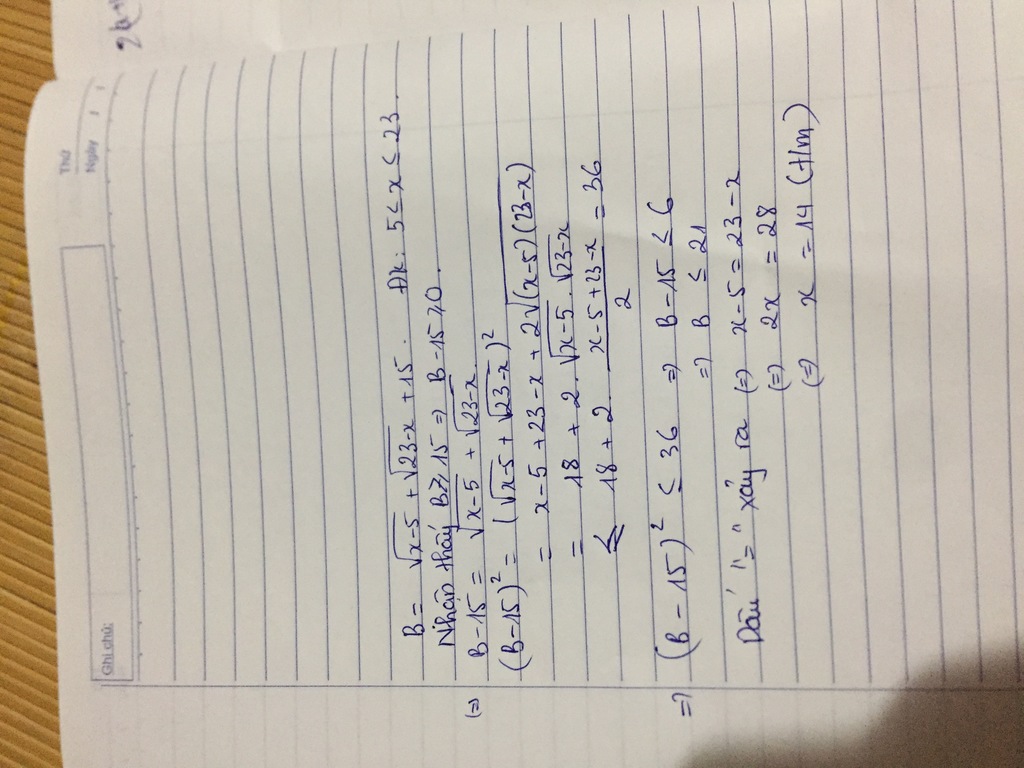 Thứ
Ngày
Ghi chú:
B = √x-5 + √23-x + 15. Đk: 5 ≤ x ≤ 23.
Nhận thấy B ≥ 15 => B - 15 ≥ 0.
(=) B - 15 = √x-5 + √23-x
(B - 15)² = (√x-5 + √23-x)²
= x - 5 + 23 - x + 2√(x-5)(23-x)
= 18 + 2. √x-5 . √23-x
≤ 18 + 2. (x - 5 + 23 - x)/2 = 36
=) (B - 15)² ≤ 36 =) B - 15 ≤ 6
=) B ≤ 21
Dấu "=" xảy ra (=) x - 5 = 23 - x
(=) 2x = 28
(=) x = 14 (t/m)